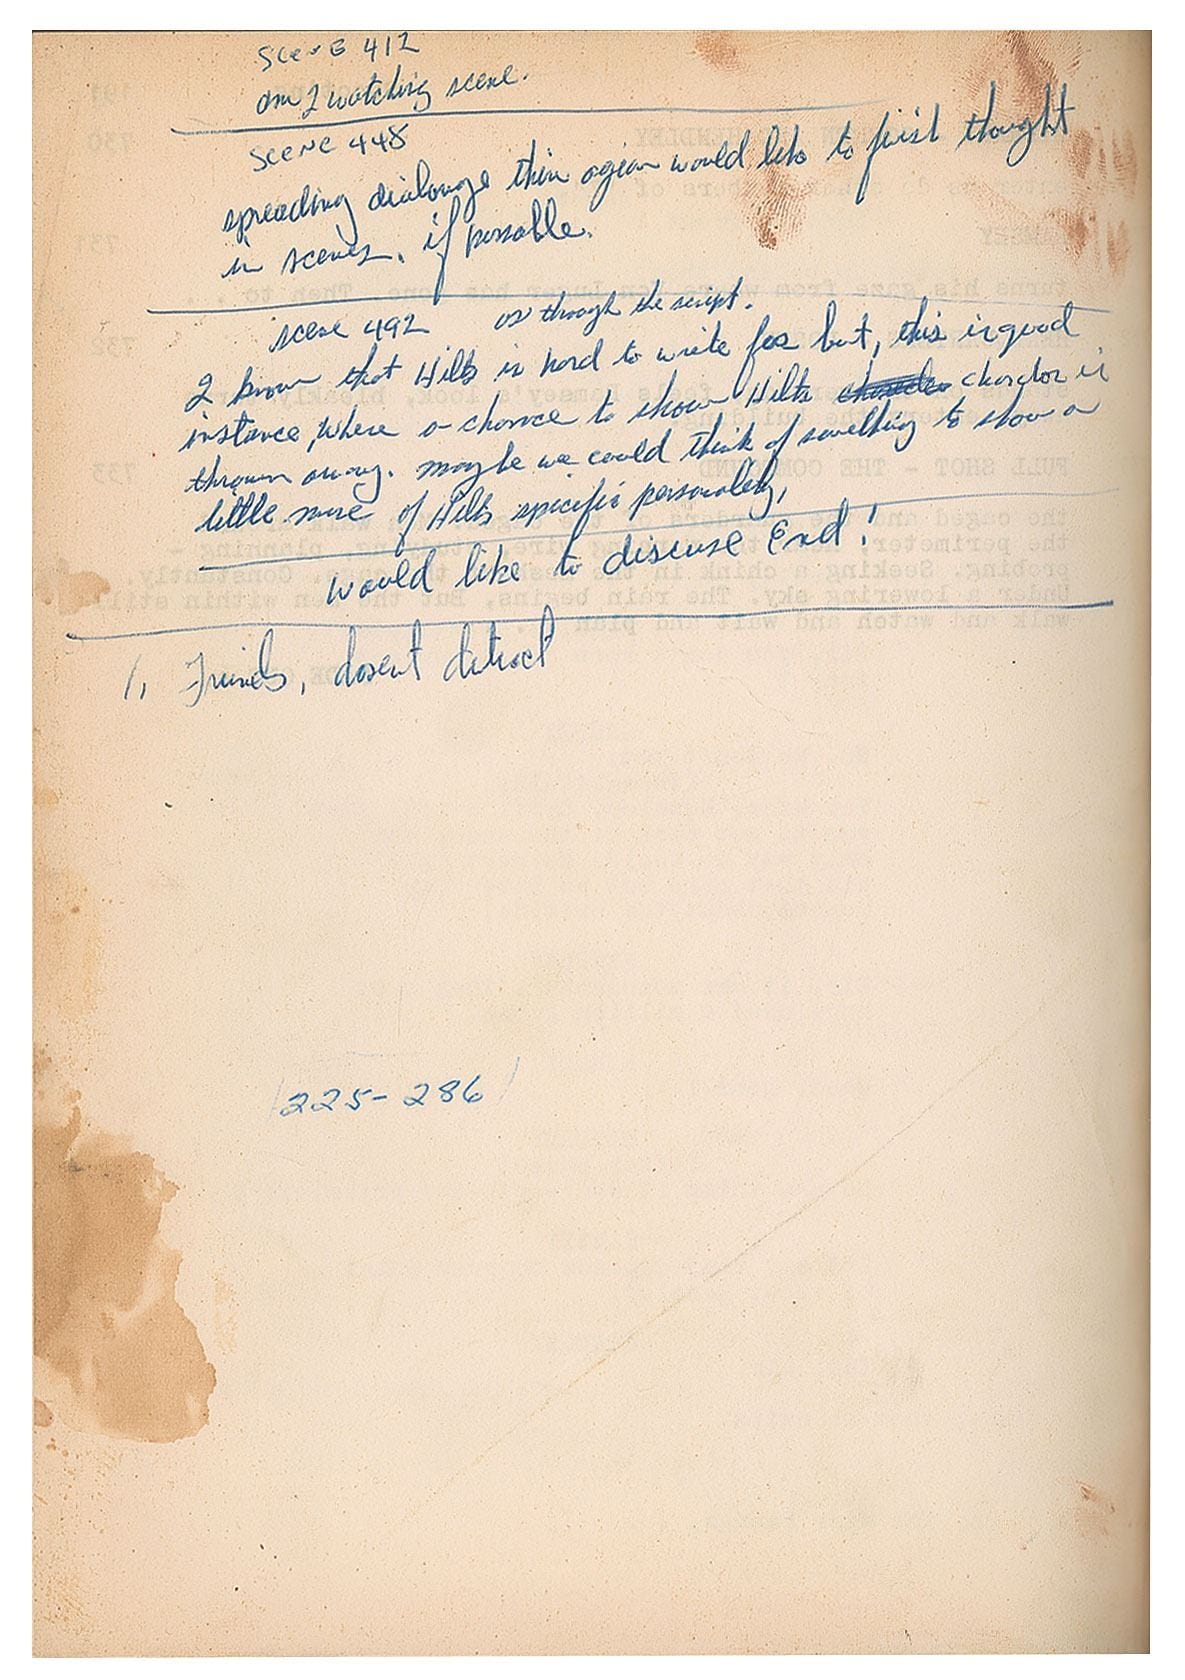 Scene 412
am I watching scene.
Scene 448
spreading dialouge thin agian would like to finish thought
in scenes, if possable.
scene 492 as through the script.
I know that Hilts is hard to write for but, this is good
instance where a chance to show Hilts charctor is
thrown away. maybe we could think of somethig to show a
little more of Hilts specific personality,
would like to discuse End!
1, Friends, dosent detract
225-286